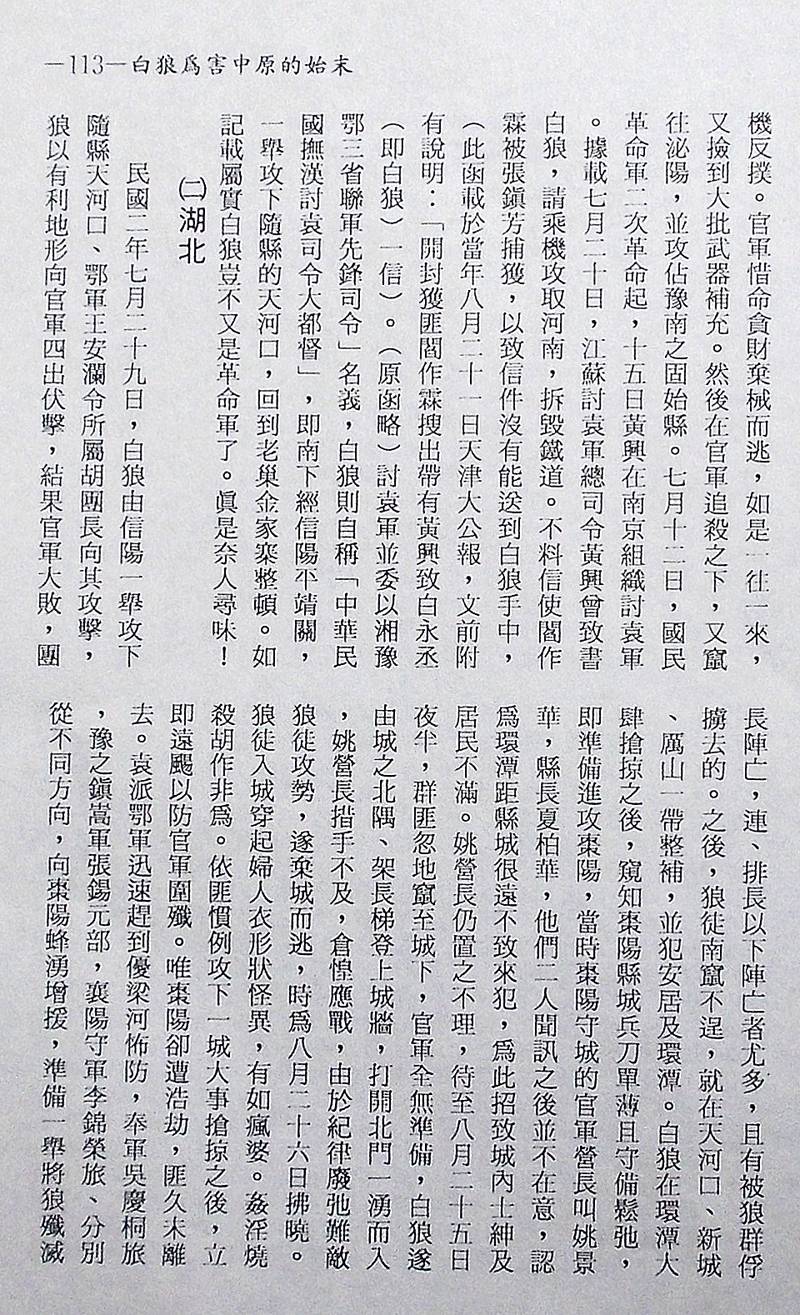 —113—白狼爲害中原的始末
機反撲。官軍惜命貪財棄械而逃，如是一往一來，
又撿到大批武器補充。然後在官軍追殺之下，又竄
往泌陽，並攻佔豫南之固始縣。七月十二日，國民
革命軍二次革命起，十五日黃興在南京組織討袁軍
。據載七月二十日，江蘇討袁軍總司令黃興曾致書
白狼，請乘機攻取河南，拆毀鐵道。不料信使閻作
霖被張鎭芳捕獲，以致信件沒有能送到白狼手中，
（此函載於當年八月二十一日天津大公報，文前附
有說明：「開封獲匪閻作霖搜出帶有黃興致白永丞
（即白狼）一信）。（原函略）討袁軍並委以湘豫
鄂三省聯軍先鋒司令」名義，白狼則自稱「中華民
國撫漢討袁司令大都督」，即南下經信陽平靖關，
一舉攻下隨縣的天河口，回到老巢金家寨整頓。如
記載屬實白狼豈不又是革命軍了。眞是奈人尋味！
㈡湖北
民國二年七月二十九日，白狼由信陽一舉攻下
隨縣天河口、鄂軍王安瀾令所屬胡團長向其攻擊，
狼以有利地形向官軍四出伏擊，結果官軍大敗，團
長陣亡，連、排長以下陣亡者尤多，且有被狼群俘
擄去的。之後，狼徒南竄不逞，就在天河口、新城
、厲山一帶整補，並犯安居及環潭。白狼在環潭大
肆搶掠之後，窺知棗陽縣城兵刀單薄且守備鬆弛，
即準備進攻棗陽，當時棗陽守城的官軍營長叫姚景
華，縣長夏柏華，他們二人聞訊之後並不在意，認
爲環潭距縣城很遠不致來犯，爲此招致城內士紳及
居民不滿。姚營長仍置之不理，待至八月二十五日
夜半，群匪忽地竄至城下，官軍全無準備，白狼遂
由城之北隅、架長梯登上城牆，打開北門一湧而入
，姚營長措手不及，倉惶應戰，由於紀律廢弛難敵
狼徒攻勢，遂棄城而逃，時爲八月二十六日拂曉。
狼徒入城穿起婦人衣形狀怪異，有如瘋婆。姦淫燒
殺胡作非爲。依匪慣例攻下一城大事搶掠之後，立
即遠颺以防官軍圍殲。唯棗陽卻遭浩劫，匪久未離
去。袁派鄂軍迅速趕到優梁河怖防，奉軍吳慶桐旅
，豫之鎭嵩軍張錫元部，襄陽守軍李錦榮旅、分別
從不同方向，向棗陽蜂湧增援，準備一舉將狼殲滅